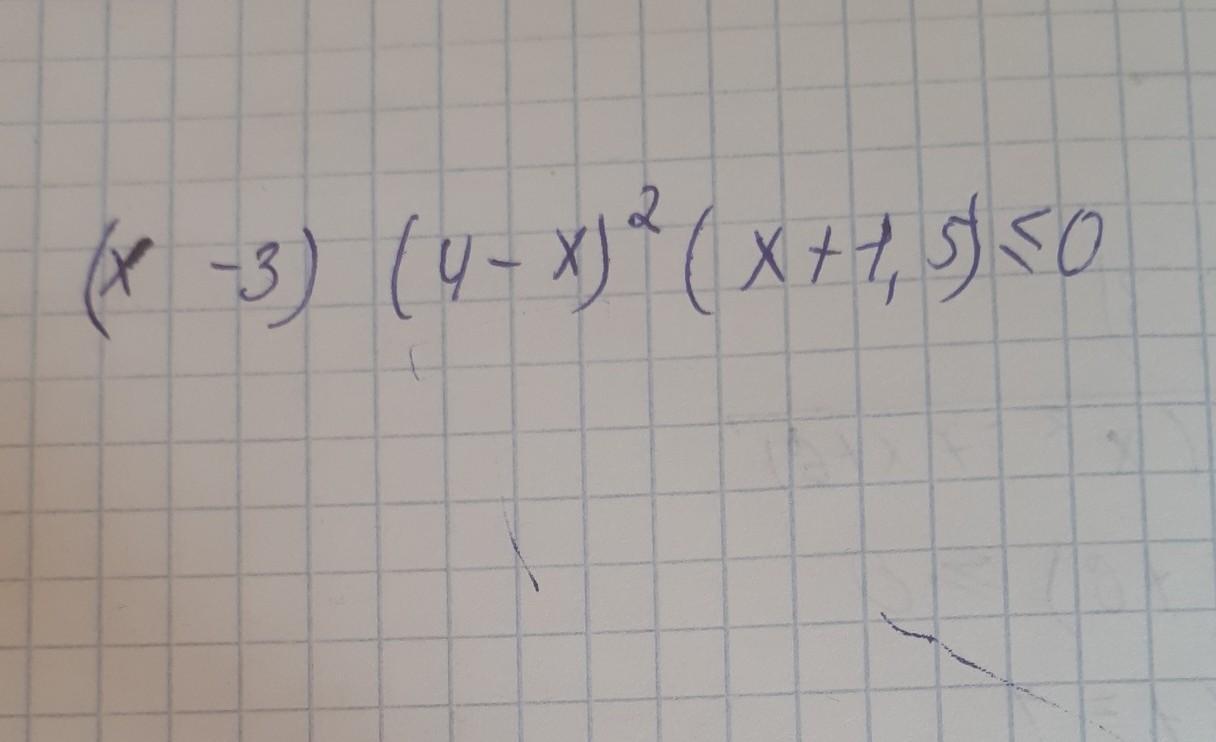 (x - 3) (4 - x)² (x + 1,5) ≤ 0